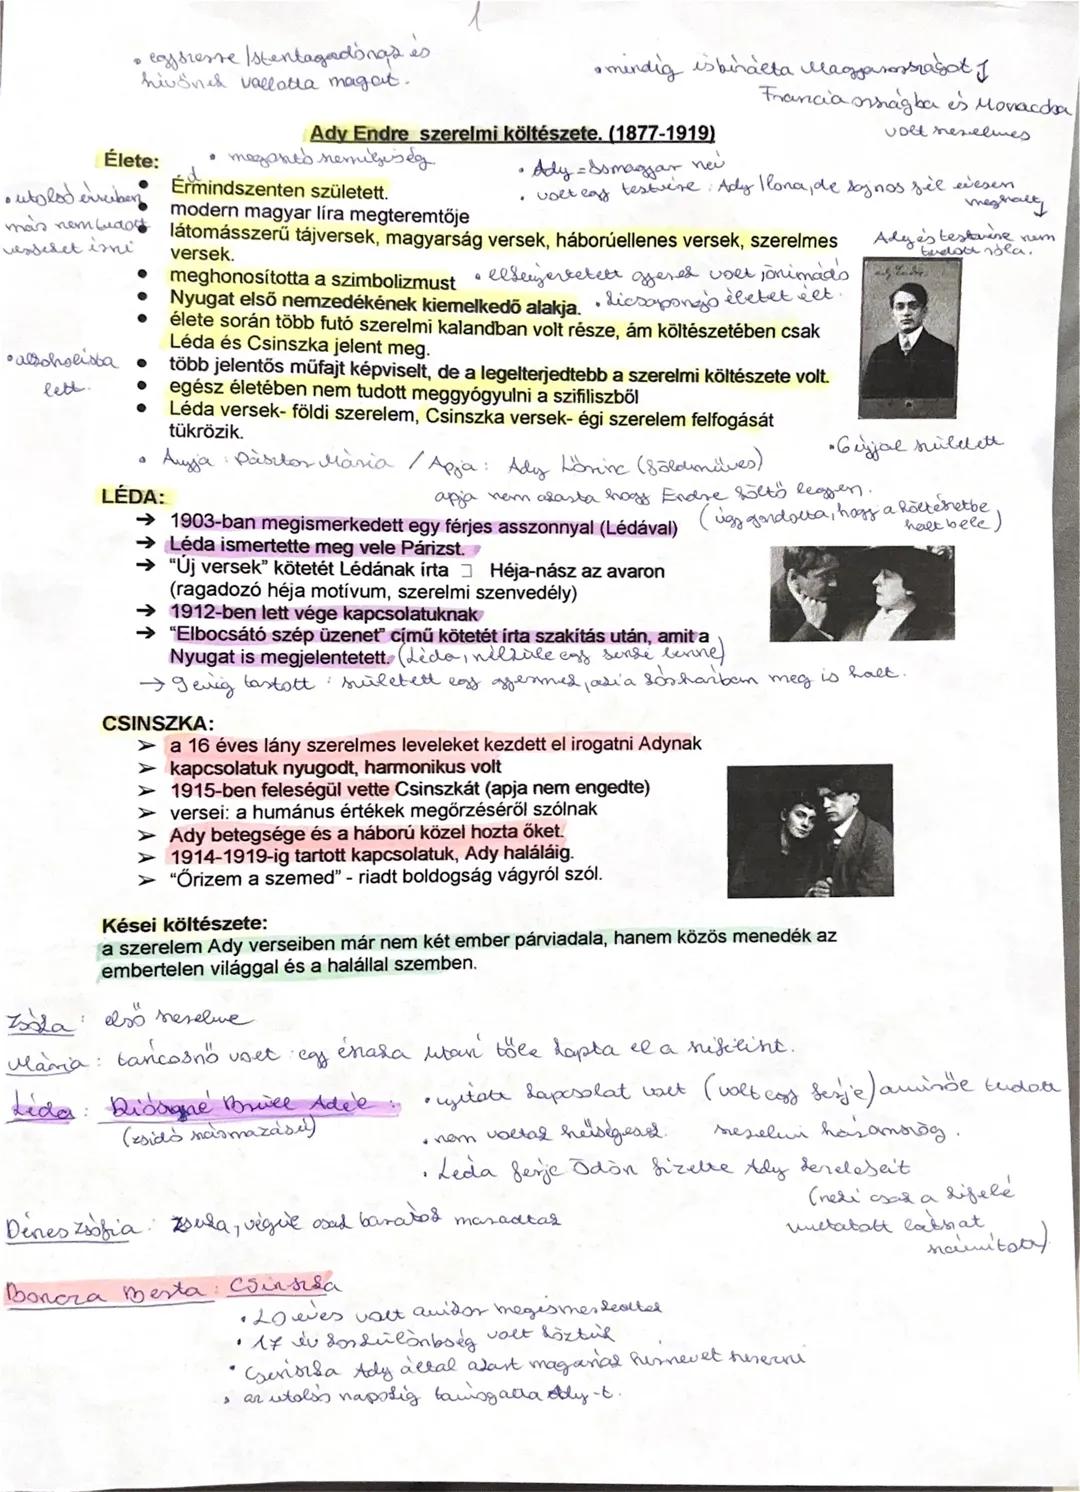 1
• egyszerre Istentagadónak és
hívőnek vallotta magát.
• mindig is bírálta Magyarországot
Franciaországba és Monacoba
volt szerelmes
Ady Endre szerelmi költészete. (1877-1919)
Élete:
• megosztó személyiség
• Ady = ősmagyar név
• volt egy testvére: Ady Ilona, de sajnos fél évesen
meghalt
Ady és testvére nem
tudott róla.
• utolsó éveiben
már nem tudott
verseket írni
• Érmindszenten született.
• modern magyar líra megteremtője
• látomásszerű tájversek, magyarság versek, háborúellenes versek, szerelmes
versek.
• meghonosította a szimbolizmust
• elkényeztetett gyerek volt, önimádó
• Nyugat első nemzedékének kiemelkedő alakja.
• kicsapongó életet élt.
• élete során több futó szerelmi kalandban volt része, ám költészetében csak
Léda és Csinszka jelent meg.
• alkoholista
lett.
• több jelentős műfajt képviselt, de a legelterjedtebb a szerelmi költészete volt.
• egész életében nem tudott meggyógyulni a szifiliszből
• Léda versek- földi szerelem, Csinszka versek- égi szerelem felfogását
tükrözik.
• 6 ujjal született
• Anyja: Pásztor Mária / Apja: Ady Lőrinc (földműves)
apja nem akarta hogy Endre költő legyen.
(úgy gondolta, hogy a költészetbe
halt bele)
LÉDA:
→ 1903-ban megismerkedett egy férjes asszonnyal (Lédával)
→ Léda ismertette meg vele Párizst.
→ “Új versek” kötetét Lédának írta Héja-nász az avaron
(ragadozó héja motívum, szerelmi szenvedély)
→ 1912-ben lett vége kapcsolatuknak
→ “Elbocsátó szép üzenet” című kötetét írta szakítás után, amit a
Nyugat is megjelentetett. (Léda, nélküle egy senki lenne)
→ 9 évig tartott: született egy gyermek, aki a kórházban meg is halt.
CSINSZKA:
➢ a 16 éves lány szerelmes leveleket kezdett el irogatni Adynak
➢ kapcsolatuk nyugodt, harmonikus volt
➢ 1915-ben feleségül vette Csinszkát (apja nem engedte)
➢ versei: a humánus értékek megőrzéséről szólnak
➢ Ady betegsége és a háború közel hozta őket.
➢ 1914-1919-ig tartott kapcsolatuk, Ady haláláig.
➢ “Őrizem a szemed” - riadt boldogság vágyról szól.
Kései költészete:
a szerelem Ady verseiben már nem két ember párviadala, hanem közös menedék az
embertelen világgal és a halállal szemben.
Zsóka: első szerelme
Mária: táncosnő volt egy éjszaka után tőle kapta el a szifiliszt.
Léda: Diósyné Brüll Adél:
(zsidó származású)
• nyitott kapcsolat volt (volt egy férje) amiről tudott
• nem voltak hűségesek. szerelmi háromszög.
• Léda férje Ödön fizette Ady kezeléseit
(neki csak a kifelé
mutatott látszat
számított)
Dénes Zsófia: Zsuka, végül csak barátok maradtak
Boncza Berta: Csinszka
• 20 éves volt amikor megismerkedtek
• 17 év korkülönbség volt köztük
• Csinszka Ady által akart magának hírnevet szerezni
• az utolsó napokig támogatta Ady-t.